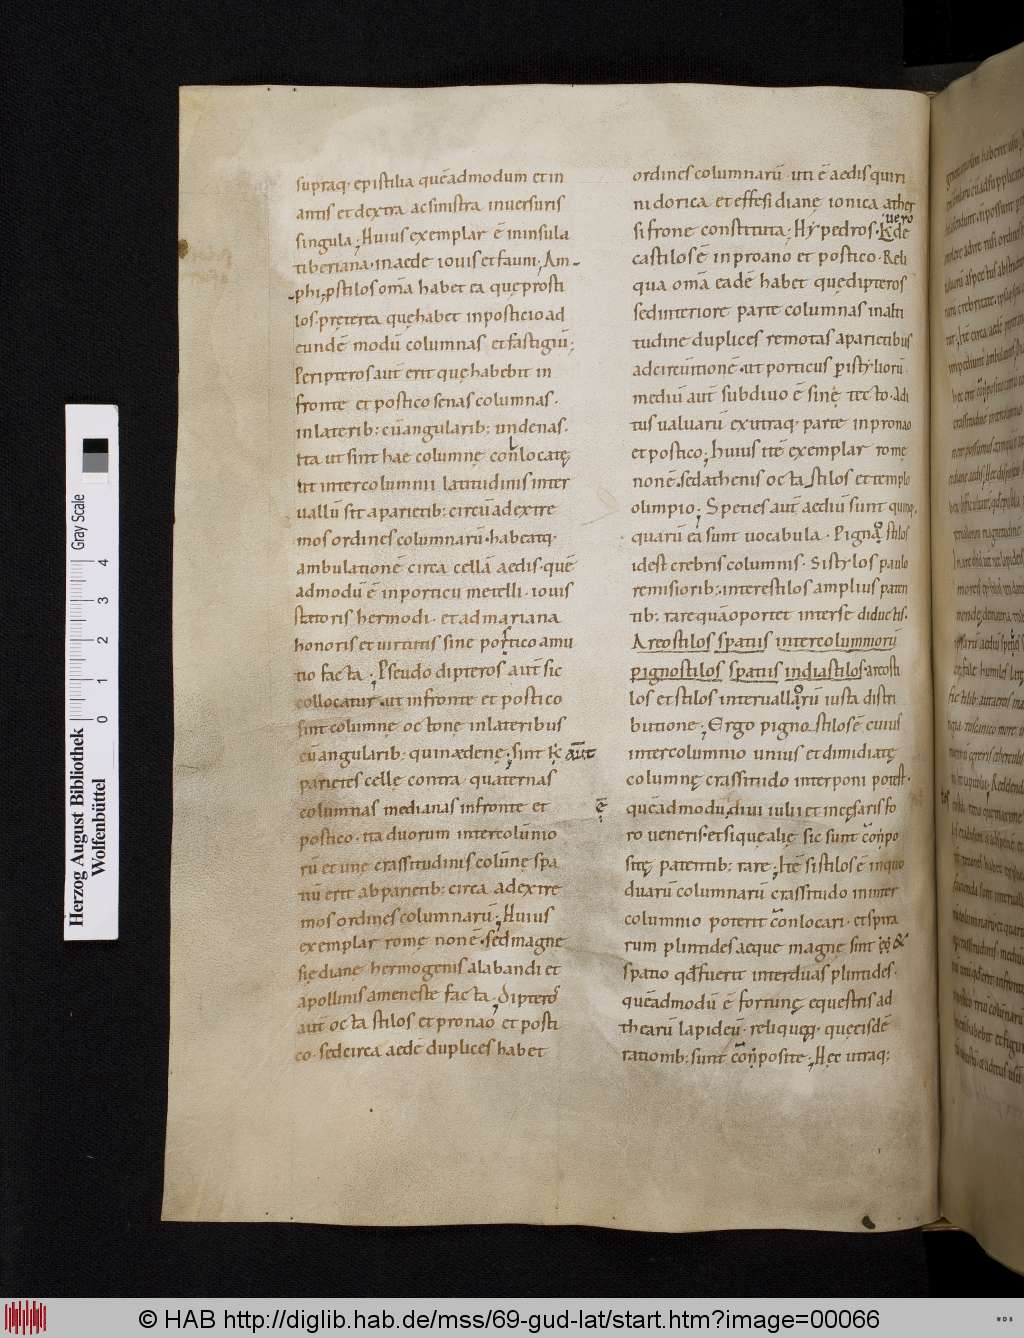 supraq· epistilia quēadmodum et in
antis et dextra ac sinistra inuersuris
singula; Huius exemplar ē ininsula
tiberiana· in aede iouis et fauni; Am-
phi pstilos om̄a habet ea quę prosti
los· pręterea quę habet inposticio ad
eundē modū columnas et fastigiū;
Peripteros aut̄ erit quę habebit in
fronte et postico senas columnas·
inlaterib: cū angularib: undenas·
Ita ut sint hae columnę conlocatę
ut intercolumnii latitudinis inter
uallū sit aparietib: circū ad extre
mos ordines columnarū· habeatq·
ambulationē circa cellā aedis· quē
admodū ē inporticu metelli· iouis
statoris hermodi· et admariana
honoris et uirtutis sine portico amu
tio facta; Pseudo dipteros aut̄ sic
collocatur· ut infronte et postico
sint columnę octonę inlateribus
cū angularib: quinædenę; sint ħ aut̄
parietes cellę contra quaternas
columnas medianas infronte et
postico· ita duorum intercolūnio
rū et unę crassitudinis colūnę spa
tiū erit abparietib: circa ad extre
mos ordines columnarū; Huius
exemplar romę non ē· sed magne
się dianę hermogenis alabandi et
apollinis ameneste facta; Dipteros
aut̄ octastilos et pronao et posti
co· sed circa aedē duplices habet
ordines columnarū· uti ē aedis quiri
ni dorica et effesi dianę ionica acther
uero
sifrone constituta; Hypedros· ħ de
castilos ē inproano et postico· Reli
qua om̄a eadē habet quę dipteros
sed interiore parte columnas inalti
tudine duplices remotas aparietibus
adcircūitionē· ut porticus pistyliorū
mediū aut̄ subdiuo ē sine tecto· adi
tus ualuarū ex utraq· parte inpronao
et postico; huius itē exemplar romę
non ē· sed athenis octastilos et templo
olimpio; Species aut̄ aediū sunt quinq·
quarū ea sunt uocabula· Pignostilos
idest crebris columnis· Sistylos paulo
remisiorib: interestilos amplius paten
tib: rare quā oportet inter se diductis·
Areostilos spatiis intercolumniorū
pignostilos spatiis indiastilos· areosti
los et stilos interuallorū iusta distri
butione; Ergo pignostilos ē cuius
intercolumnio unius et dimidiatę
columnę crassitudo interponi potest·
ē
quēadmodū diui iulii et in cęsaris fo
ro ueneris· et si quę alię sic sunt conpo
sitę patentib: rare; Itē sistilos ē in quo
duarū columnarū crassitudo ininter
columnio poterit conlocari· et spira
rum plintides aeque magne sint ęę &
spatio qđ fuerit inter duas plintides·
quēadmodū ē fortunę equestris ad
thearū lapideū· reliquęq· quę eisdē
rationib: sunt conpositę; Hęc utraq:
Gray Scale
0 1 2 3 4
Herzog August Bibliothek
Wolfenbüttel
© HAB http://diglib.hab.de/mss/69-gud-lat/start.htm?image=00066